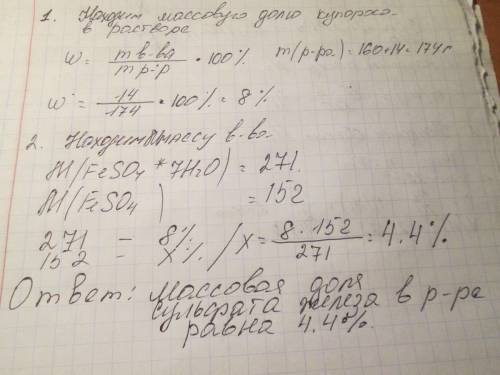 1. Находим массовую долю купороса
в растворе
w = m в-ва / m р-р • 100% m(р-ра) = 160+14 = 174 г
w = 14 / 174 • 100% = 8%
2. Находим массу в-ва
M(FeSO4 * 7H2O) = 271
M(FeSO4) = 152
271 – 8%
152 – x% / x = 8 · 152 / 271 = 4.4%
Ответ: массовая доля
сульфата железа в р-ре
равна 4.4%.